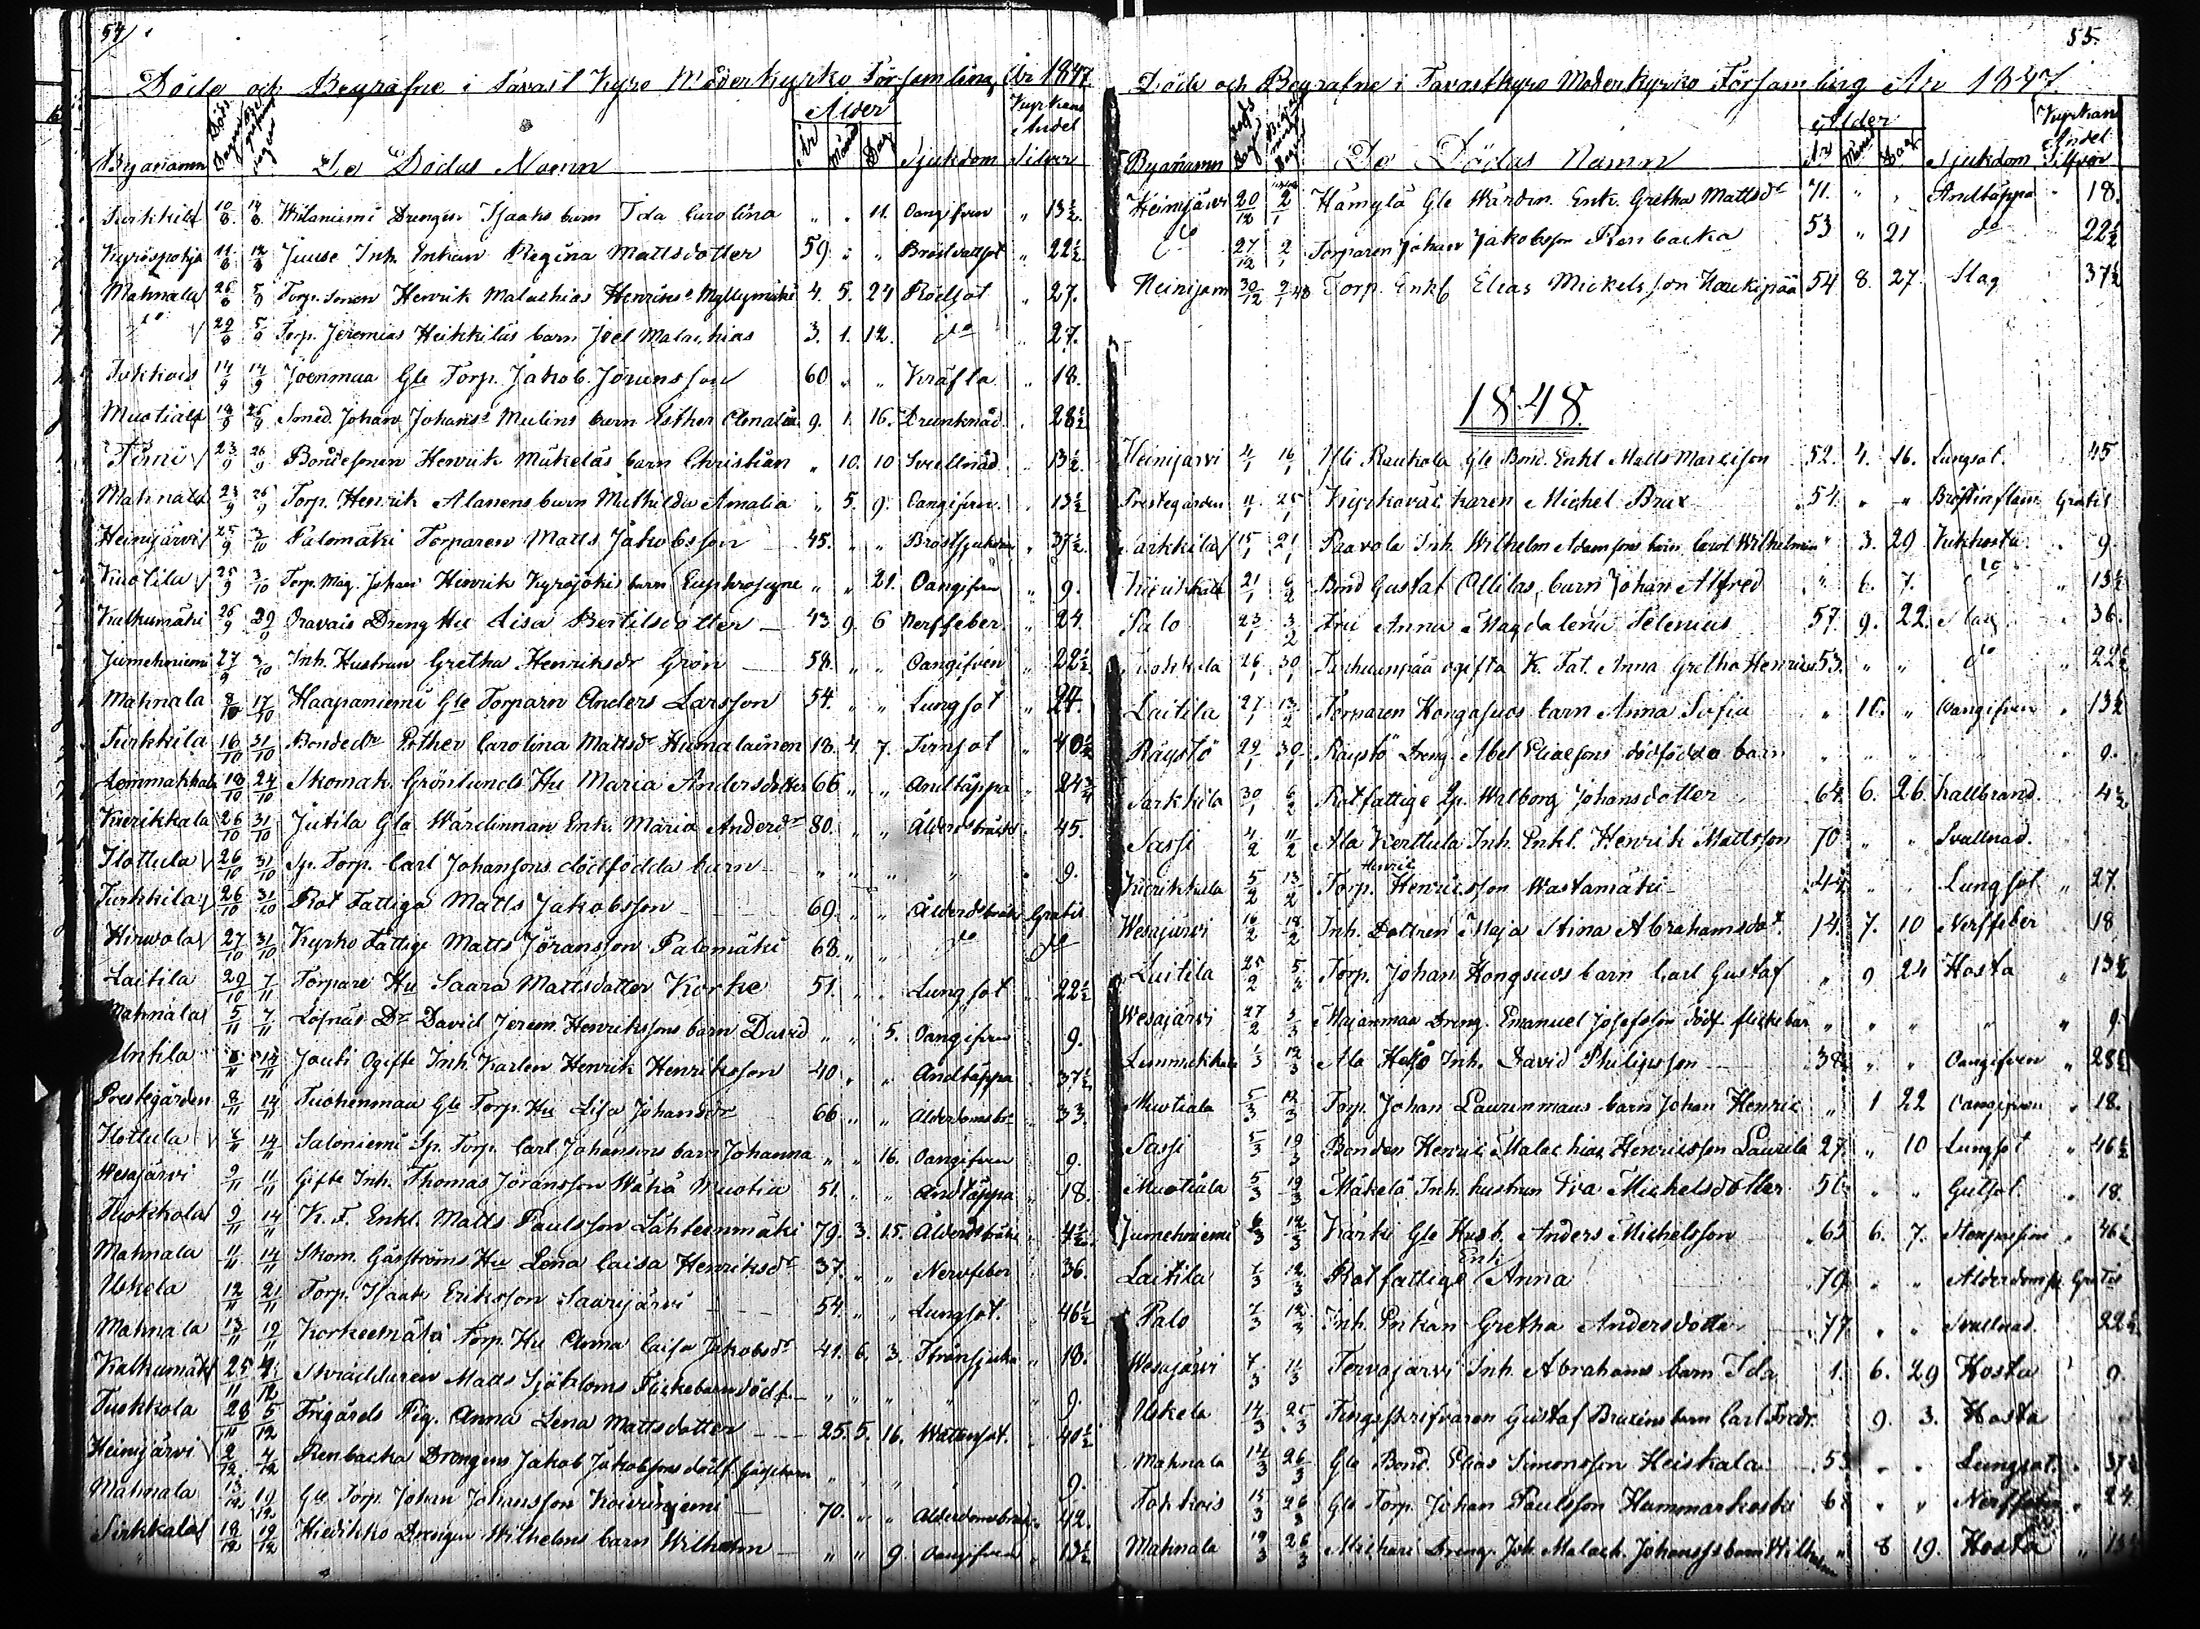 54
Döde och Begrafne i Tavast Kyro Moderkyrko Församling År 1847
Ålder Kyrkans Andel
Byanamn Döds Dagen De Dödas Namn År Månad Dag Sjukdom Silver
Turkkila 10/8 14/8 Drengen Isaaks barn Ida Carolina " " 11. Oangifven " 13½
Kyröspohja 11/8 Juuse Inh. Enkan Regina Mattsdotter 59 " " Bröstvattsot " 22½
Mahnala 26/8 5/9 Torp. sonen Henrik Malachias Henrikss. Myllymäki 4. 5. 24 Rödsot " 27.
do 29/8 5/9 Torp. Jeremias Heikkiläs barn Joel Malachias 3. 1. 12. do " 27.
Tokkois 14/9 19/9 Joenmaa Gle Torp. Jakob Jöransson 60 " " Kräfta " 18.
Muotiala 18/9 26/9 Smed. Johan Johanss. barn Esther 9. 1. 16. Drunknad 28½
23/9 26/9 Bondesonen Henrik Mäkeläs barn Christian " 10. 10 Svullnad 13½
Mahnala 23/9 26/9 Torp. Henrik Alanens barn Mathilda Amalia " 5. 9. Oangifven 13½
Heinijärvi 25/9 3/10 Palomäki Torparen Matts Jakobsson 45. " " Bröstsjukdom 37½
25/9 3/10 Torp. Mag. Johan Henrik Kyröjokis barn Euphrosyne " " 21. Oangifven " 9.
Kalkumäki 26/9 29/9 Oravais Dreng Hu Lisa Bertilsdotter 43 9. 6 Nerffeber " 24.
Jumehniemi 27/9 3/10 Inh. Hustrun Gretha Henriksdr Grön 58. " " Oangifven " 22½
Mahnala 8/10 17/10 Haapaniemi Gle Torparn Anders Larsson 54. " " Lungsot " 24.
Turkkila 16/10 31/10 Bondedr Carolina Mattsdr Humalainen 18. 4. 7. " 40½
Lemmakkala 18/10 24/10 Skomak. Grönlunds Hu Maria Andersdotter 66 " " Andtäppa " 24¾
Kierikkala 26/10 31/10 Jutila Gla Wärdinnan Enk. Maria Andersdr 80. " " Ålderdsbräcka 45.
Hottula 26/10 31/10 Sp. Torp. Carl Johanssons dödfödda barn " " " " 9.
Turkkila 26/10 31/10 Rot Fattiga Matts Jakobsson 69. " " Ålderdsbräcka Gratis
Hirwola 27/10 31/10 Kyrko Fattige Matts Jöransson Palomäki 68. " " do do
Laitila 29/10 7/11 Torpare Hu Saara Mattsdotter Korke 51. " " Lungsot " 22½
Mahnala 5/11 7/11 Löfnäs Dr. David Jerem. Henrikssons barn David " " 5. Oangifven 9.
14/11 Jouti Ogifte Inh. Karlen Henrik Henriksson 40 " " Andtäppa 37½
Prestegården 8/11 14/11 Gle Torp. Hu Lisa Johansdr 66 " " Ålderdomsbr 33.
Hottula 14/11 Saloniemi Sp. Torp. Carl Johanssons barn Johanna " " 16. Oangifven 9.
Wesajärvi 9/11 11/11 Gifte Inh. Thomas Jöransson Wähä Muotia 51. " " Andtäppa 18.
Tuokkola 9/11 14/11 K. F. Enkl. Matts Paulsson Lähteenmäki 79. 3. 15. Ålderdsbräcka 4½
Mahnala 11/11 14/11 Skom. Gåsströms Hu Lena Caisa Henriksdr 37. " " Nervfeber 36.
Uskela 12/11 21/11 Torp. Isaak Eriksson Saarijärvi 54. " " Lungsot. 46½
Mahnala 13/11 19/11 Korkeemäki Torp. Hu Anna Caisa Jakobsdr 41. 6. 3. 18.
Kalkumäki 25/11 4/12 Skräddaren Matts Sjöbloms Flickebarn dödf. " " " " 9.
Tuokkola 28/11 5/12 Frigårds Pig. Anna Lena Mattsdotter 25. 5. 16. Wattensot. 40½
Heinijärvi 2/12 4/12 Renbacka Drengens Jakob Jakobssons dödf. Gossebarn " " " 9.
Mahnala 13/12 19/12 Gle Torp. Johan Johansson Koivuniemi 70. " " Ålderdomsbräcka 42.
18/12 19/12 Hiedikko Drengen Wilhelms barn Wilhelm " " 9. Oangifven 13½
55.
Döde och Begrafne i Tavastkyro Moderkyrko Församling År 1847.
Ålder Kyrkans Andel
Byanamn De Dödas Namn År Månad Dag Sjukdom Silfver
Heinijärvi 20/12 2/1 Hämylä Gle Wärdin. Enk. Gretha Mattsdr 71. " " Andtäppa " 18.
do 27/12 2/1 Torparen Johan Jakobsson Renbacka 53 " 21 do 22½
Heinijärvi 30/12 2/1 48 Torp. Enkl. Elias Mickelsson Haukipää 54 8. 27. Slag 37½
1848.
Heinijärvi 4/1 16/1 Raukola Gle Bond. Enkl Matts 52. 4. 16. Lungsot. 45
Prestegården 11/1 25/1 Kyrkovaktaren Michel Brax 54. " " Bröstinflam Gratis
Sarkkila 15/1 21/1 Paavola Inh. Wilhelm Adamssons barn Carol. Wilhelmina " 3. 29 Kikhosta 9
Kierikkala 21/1 6/2 Bond Gustaf Ollilas barn Johan Alfred " 6. 7. do " 13½
Palo 23/1 3/2 Fru Anna Magdalena Selenius 57. 9. 22. Slag 36.
26/1 30/1 ogifta K. Fat. Anna Gretha Henriksd 53. " " do " 22½
Laitila 27/1 13/2 Torparen Hongasuos barn Anna Sofia " 10. " Oangifven " 13½
Räystö 29/1 30/1 Räystö Dreng Abel Eliassons dödfödda barn " " " " " 9.
Sarkkila 30/1 6/2 Rotfattige Pp. Walborg Johansdotter 64. 6. 26. Kallbrand. 4½
Sassi 4/2 11/2 Ala Kerttula Inh. Enkl. Henrik Mattsson 70 " " Svallnad.
Kierikkala 5/2 13/2 Torp. Henrik Henricsson Wastamäki 44 " " Lungsot " 27.
Wesajärvi 16/2 18/2 Inh. Dottren Maja Stina Abrahamsdot. 14. 7. 10 Nerffeber " 18.
Laitila 25/2 5/3 Torp. Johan Hongsuos barn Carl Gustaf " 9 24 Hosta " 13½
Wesajärvi 27/2 5/3 Majanmaa Dreng. Emanuel Josefsson dödf. flickebar " " " " " 9.
Lemmakkala 1/3 12/3 Ala Inh. David Philipsson 38 " " Oangifven " 28½
Muotiala 5/3 12/3 Torp. Johan Laurinmaas barn Johan Henric " 1 22 Oangifven " 18.
Sassi 5/3 19/3 Bonden Henric Malachias Henricsson Laurila 27. " 10 Lungsot " 46½
Muotiala 5/3 19/3 Mäkelä Inh. hustrun Eva Michelsdotter 56 " " Gulsot. " 18.
Jumehniemi 6/3 12/3 Kärki Gle Husb. Anders Michelsson 65 6. 7. " 46½
Laitila 7/3 12/3 Rotfattige Enk. Anna 79. " " Alderdomsk Gratis
Palo 7/3 12/3 Inh. Enkan Gretha Andersdotter 77 " " Svallnad. 22½
Wesajärvi 7/3 11/3 Tervajärvi Inh. Abrahams barn Ida 1. 6. 29 Hosta 9.
Uskela 14/3 25/3 Tingsskrifvaren Gustaf Braxens barn Carl Fredr. 9. 3. Hosta
Mahnala 14/3 26/3 Gle Bond. Elias Simonsson Heiskala 53 " " Lungsot. " 37½
Tokkois 15/3 26/3 Gle Torp. Johan Paulsson Hammarkoski 6 " " Nerffeber " 24.
Mahnala 19/3 26/3 Dreng. Joh. Malach. Johanss. barn Wilhelm " 8 19. Hosta " 13½